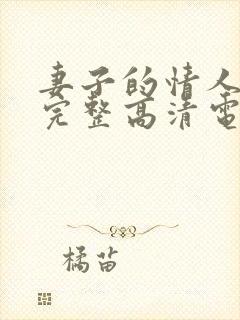 妻子的情人
完整高清電
橘苗